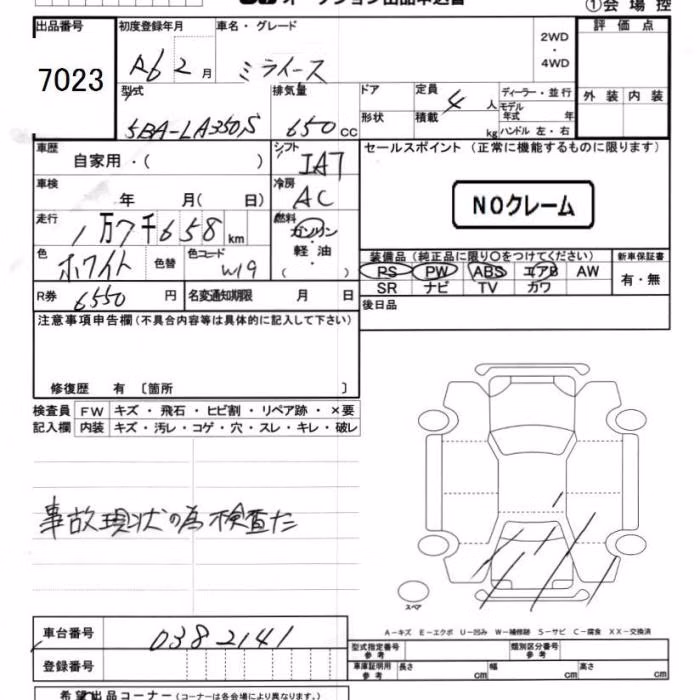 オークション出品申込書
①会場控
出品番号
7023
初度登録年月
R6 2 月
車名・グレード
ミライース
2WD
・
4WD
評価点
外装 内装
型式
5BA-LA350S
排気量
650 cc
ドア
形状
定員
4 人
積載
kg
ディーラー・並行
モデル年式 年
ハンドル 左・右
車歴
自家用・( )
シフト
IAT
セールスポイント(正常に機能するものに限ります)
NOクレーム
車検
年 月( 日)
冷房
AC
走行
1万7千658 km
燃料
ガソリン
・
軽油
( )
色
ホワイト
色替
色コード
W19
装備品(純正品に限り○をつけてください)
PS PW ABS エアB AW
SR ナビ TV カワ
新車保証書
有・無
R券
6550 円
名変通知期限 月 日
後日品
注意事項申告欄(不具合内容等は具体的に記入して下さい)
修復歴 有 〔箇所 〕
検査員記入欄
FW キズ・飛石・ヒビ割・リペア跡・×要
内装 キズ・汚レ・コゲ・穴・スレ・キレ・破レ
事故現状の為検査た
スペア
A-キズ E-エクボ U-凹み W-補修跡 S-サビ C-腐食 XX-交換済
車台番号
0382141
登録番号
型式指定番号
参考
類別区分番号
参考
車庫証明用
参考
長さ cm 幅 cm 高さ cm
希望出品コーナー(コーナーは各会場により異なります。)